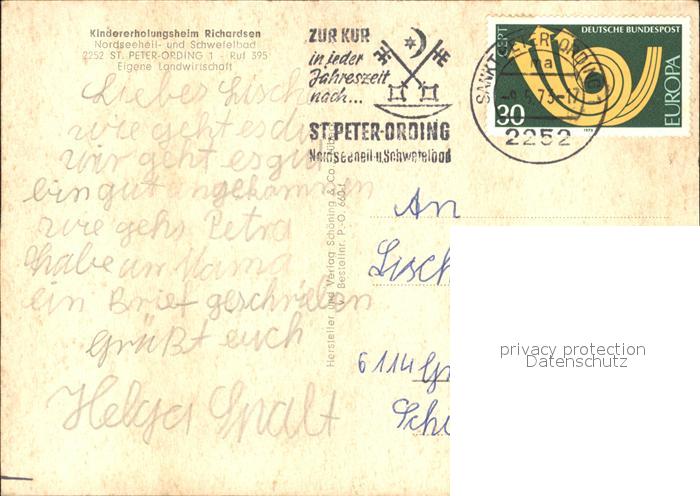 Kindererholungsheim Richardsen
Nordseeheil- und Schwefelbad
2252 ST. PETER-ORDING 1 - Ruf 395
Eigene Landwirtschaft
ZUR KUR
in jeder
Jahreszeit
nach...
ST. PETER-ORDING
Nordseeheil-u.Schwefelbad
SANKT PETER-ORDING 1
ma
2252
DEUTSCHE BUNDESPOST
CEPT
EUROPA
30
1973
Liebes
wie geht es
mir geht es gut
bin gut angekommen
wie gehs Petra
habe an Mama
ein Brief geschrieben
Grüßt euch
Helga Spalt
Hersteller und Verlag Schöning & Co
Bestellnr. P.-O. 660/1
An
Lisch
6114 G
Sch
privacy protection
Datenschutz